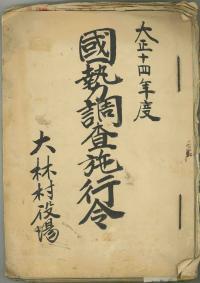 大正十四年度
國勢調査施行令
大林村役場